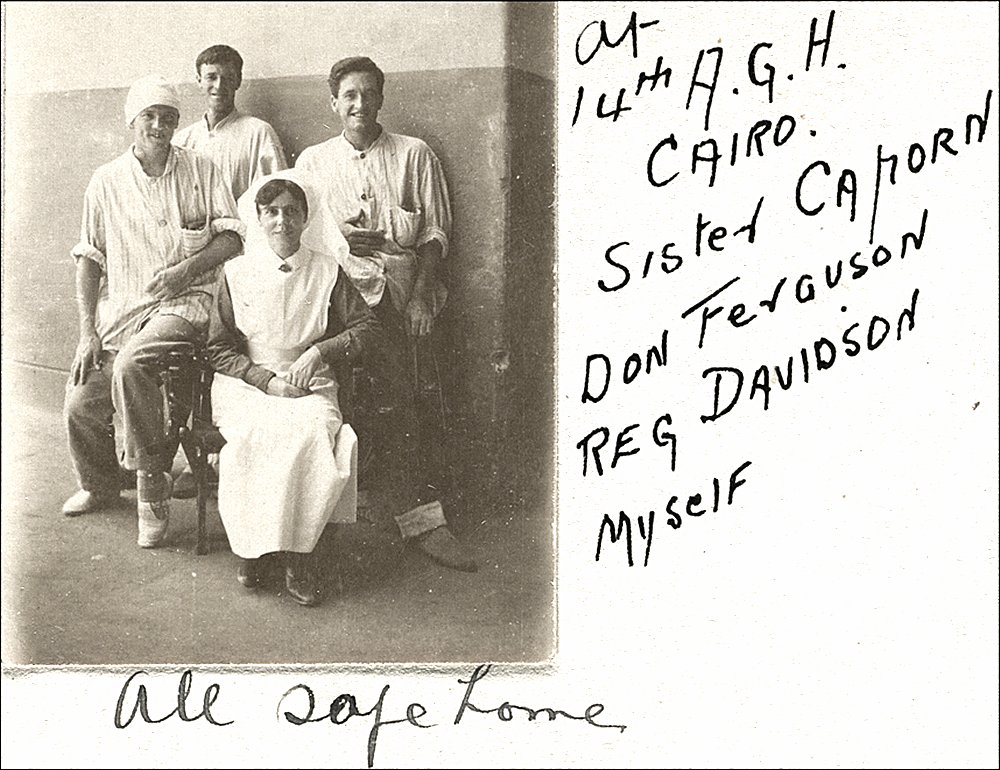 at
14th A.G.H.
CAIRO.
Sister CAPORN
DON Ferguson
REG DAVIDSON
Myself
All safe home